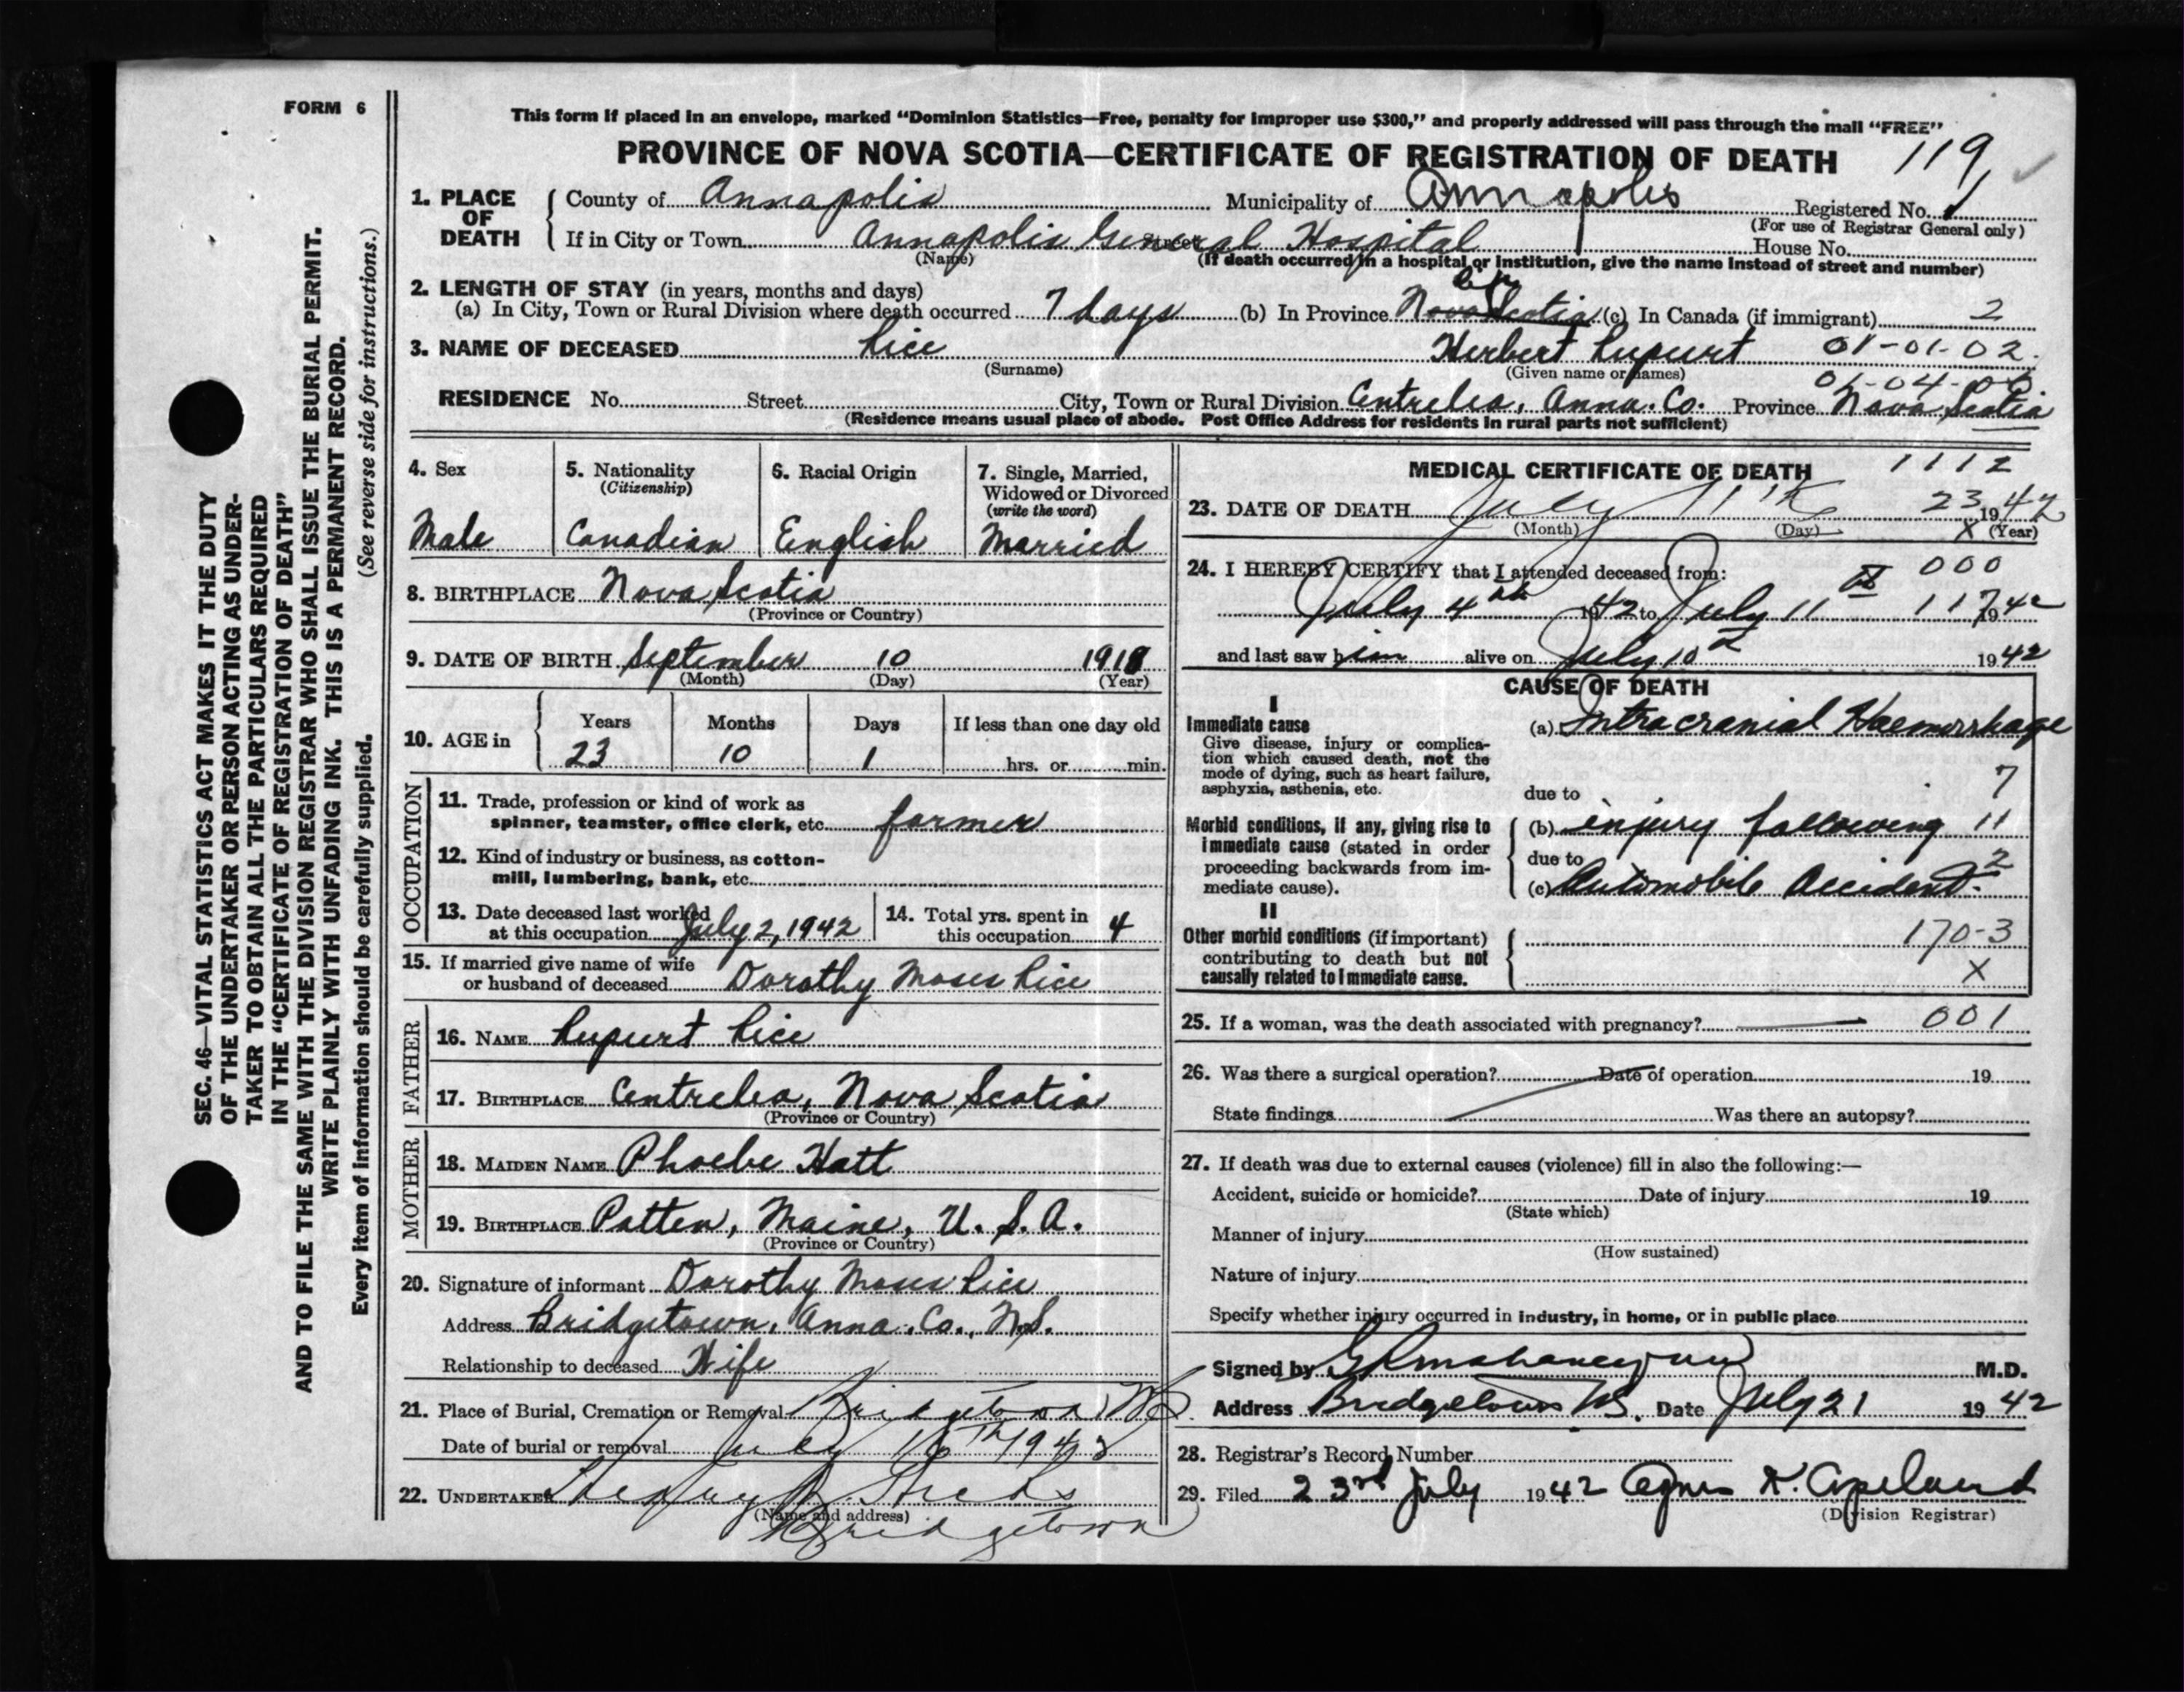 FORM 6
This form if placed in an envelope, marked "Dominion Statistics—Free, penalty for improper use $300," and properly addressed will pass through the mail "FREE"
PROVINCE OF NOVA SCOTIA—CERTIFICATE OF REGISTRATION OF DEATH 119
SEC. 46—VITAL STATISTICS ACT MAKES IT THE DUTY
OF THE UNDERTAKER OR PERSON ACTING AS UNDER-
TAKER TO OBTAIN ALL THE PARTICULARS REQUIRED
IN THE "CERTIFICATE OF REGISTRATION OF DEATH"
AND TO FILE THE SAME WITH THE DIVISION REGISTRAR WHO SHALL ISSUE THE BURIAL PERMIT.
WRITE PLAINLY WITH UNFADING INK. THIS IS A PERMANENT RECORD.
Every item of information should be carefully supplied. (See reverse side for instructions.)
1. PLACE OF DEATH
County of Annapolis Municipality of Annapolis Registered No.
(For use of Registrar General only)
If in City or Town Annapolis General Hospital House No.
(Name) (If death occurred in a hospital or institution, give the name instead of street and number)
2. LENGTH OF STAY (in years, months and days)
(a) In City, Town or Rural Division where death occurred 7 days (b) In Province Nova Scotia (c) In Canada (if immigrant) 2
3. NAME OF DECEASED Rice Herbert Rupurt 01-01-02
(Surname) (Given name or names)
RESIDENCE No. Street City, Town or Rural Division Centrelea, Anna. Co. Province Nova Scotia
(Residence means usual place of abode. Post Office Address for residents in rural parts not sufficient)
4. Sex
Male
5. Nationality
(Citizenship)
Canadian
6. Racial Origin
English
7. Single, Married,
Widowed or Divorced
(write the word)
Married
8. BIRTHPLACE Nova Scotia
(Province or Country)
9. DATE OF BIRTH September 10 1918
(Month) (Day) (Year)
10. AGE in
Years Months Days If less than one day old
23 10 1 hrs. or min.
OCCUPATION
11. Trade, profession or kind of work as
spinner, teamster, office clerk, etc. farmer
12. Kind of industry or business, as cotton-
mill, lumbering, bank, etc.
13. Date deceased last worked
at this occupation July 2, 1942
14. Total yrs. spent in
this occupation 4
15. If married give name of wife
or husband of deceased Dorothy Moses Rice
FATHER
16. NAME Rupurt Rice
17. BIRTHPLACE Centrelea, Nova Scotia
(Province or Country)
MOTHER
18. MAIDEN NAME Phoebe Hatt
19. BIRTHPLACE Patten, Maine, U.S.A.
(Province or Country)
20. Signature of informant Dorothy Moses Rice
Address Bridgetown, Anna. Co., N.S.
Relationship to deceased Wife
21. Place of Burial, Cremation or Removal Bridgetown NS
Date of burial or removal July
22. UNDERTAKER
(Name and address)
Bridgetown
MEDICAL CERTIFICATE OF DEATH 1112
23. DATE OF DEATH July 11th 23 1942
(Month) (Day) X (Year)
24. I HEREBY CERTIFY that I attended deceased from: 000
July 4th 1942 to July 11th 117 1942
and last saw him alive on July 10 1942
CAUSE OF DEATH
I
Immediate cause
Give disease, injury or complica-
tion which caused death, not the
mode of dying, such as heart failure,
asphyxia, asthenia, etc.
(a) Intracranial Haemorrhage
due to 7
Morbid conditions, if any, giving rise to
immediate cause (stated in order
proceeding backwards from im-
mediate cause).
(b) injury following 11
due to 2
(c) Automobile Accident.
II
Other morbid conditions (if important)
contributing to death but not
causally related to immediate cause.
170-3
X
25. If a woman, was the death associated with pregnancy? 001
26. Was there a surgical operation? Date of operation 19
State findings Was there an autopsy?
27. If death was due to external causes (violence) fill in also the following:—
Accident, suicide or homicide? Date of injury 19
(State which)
Manner of injury
(How sustained)
Nature of injury
Specify whether injury occurred in industry, in home, or in public place
Signed by M.D.
Address Bridgetown NS. Date July 21 1942
28. Registrar's Record Number
29. Filed 23rd July 1942 Agnes K. Copeland
(Division Registrar)